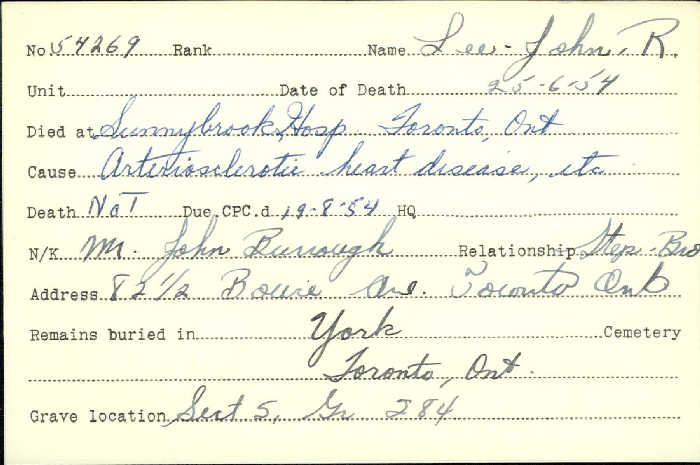 No. 54269 Rank Name Lee - John, R.
Unit Date of Death 25-6-54
Died at Sunnybrook Hosp Toronto, Ont
Cause Arteriosclerotic heart disease, etc
Death Not Due CPC.d 19-8-54 HQ
N/K Mr. John Burrough Relationship Step-Bro
Address 82 1/2 Ave. Toronto Ont
Remains buried in York Cemetery
Toronto, Ont.
Grave location Sect 5, Gr 284